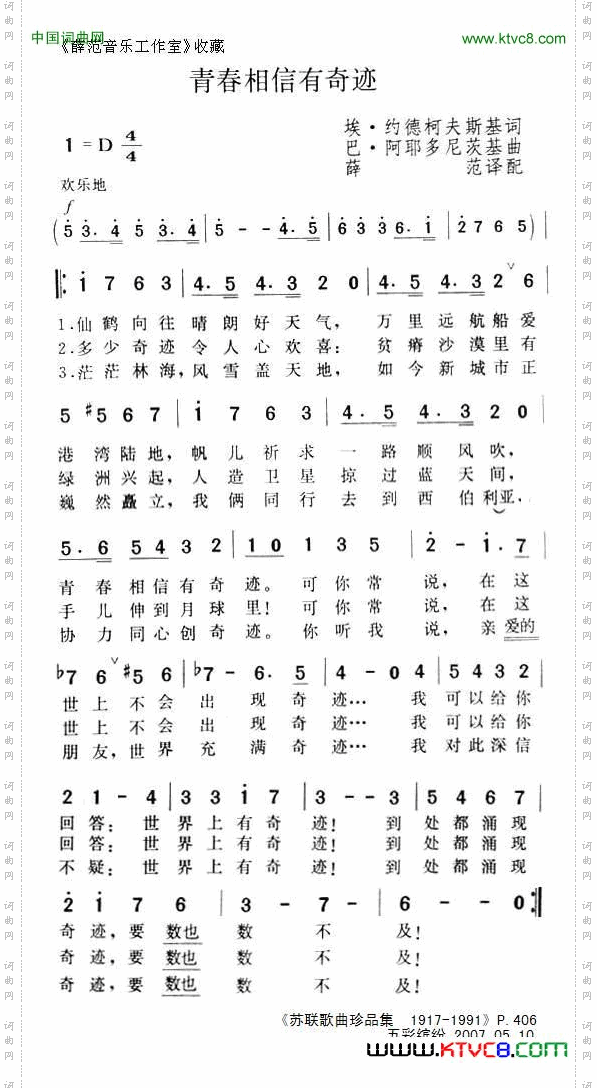 中国词典网
《薛范音乐工作室》收藏
www.ktvc8.com
青春相信有奇迹
1 = D 4/4
埃·约德柯夫斯基词
巴·阿耶多尼茨基曲
薛 范译配
欢乐地
f
( 5 3. 4 5 3. 4 | 5 - - 4. 5 | 6 3 3 6. 1 | 2 7 6 5 )
‖: 1 7 6 3 | 4. 5 4. 3 2 0 | 4. 5 4. 3 2 ∨ 6 |
1.仙鹤向往晴朗好天气， 万里远航船爱
2.多少奇迹令人心欢喜： 贫瘠沙漠里有
3.茫茫林海，风雪盖天地， 如今新城市正
5 #5 6 7 | 1 7 6 3 | 4. 5 4. 3 2 0 |
港湾陆地，帆儿祈求一路顺风吹，
绿洲兴起，人造卫星掠过蓝天间，
巍然矗立，我俩同行去到西伯利亚，
5. 6 5 4 3 2 | 1 0 1 3 5 | 2 - 1. 7 |
青春相信有奇迹。可你常说，在这
手儿伸到月球里！可你常说，在这
协力同心创奇迹。你听我说，亲爱的
b7 6 ∨ #5 6 | b7 - 6. 5 | 4 - 0 4 | 5 4 3 2 |
世上不会出现奇迹… 我可以给你
世上不会出现奇迹… 我可以给你
朋友，世界充满奇迹… 我对此深信
2 1 - 4 | 3 3 1 7 | 3 - - 3 | 5 4 6 7 |
回答：世界上有奇迹！到处都涌现
回答：世界上有奇迹！到处都涌现
不疑：世界上有奇迹！到处都涌现
2 1 7 6 | 3 - 7 - | 6 - - 0 :‖
奇迹，要数也数不及！
奇迹，要数也数不及！
奇迹，要数也数不及！
《苏联歌曲珍品集 1917-1991》P.406
五彩缤纷 2007.05.10
www.KTVC8.com